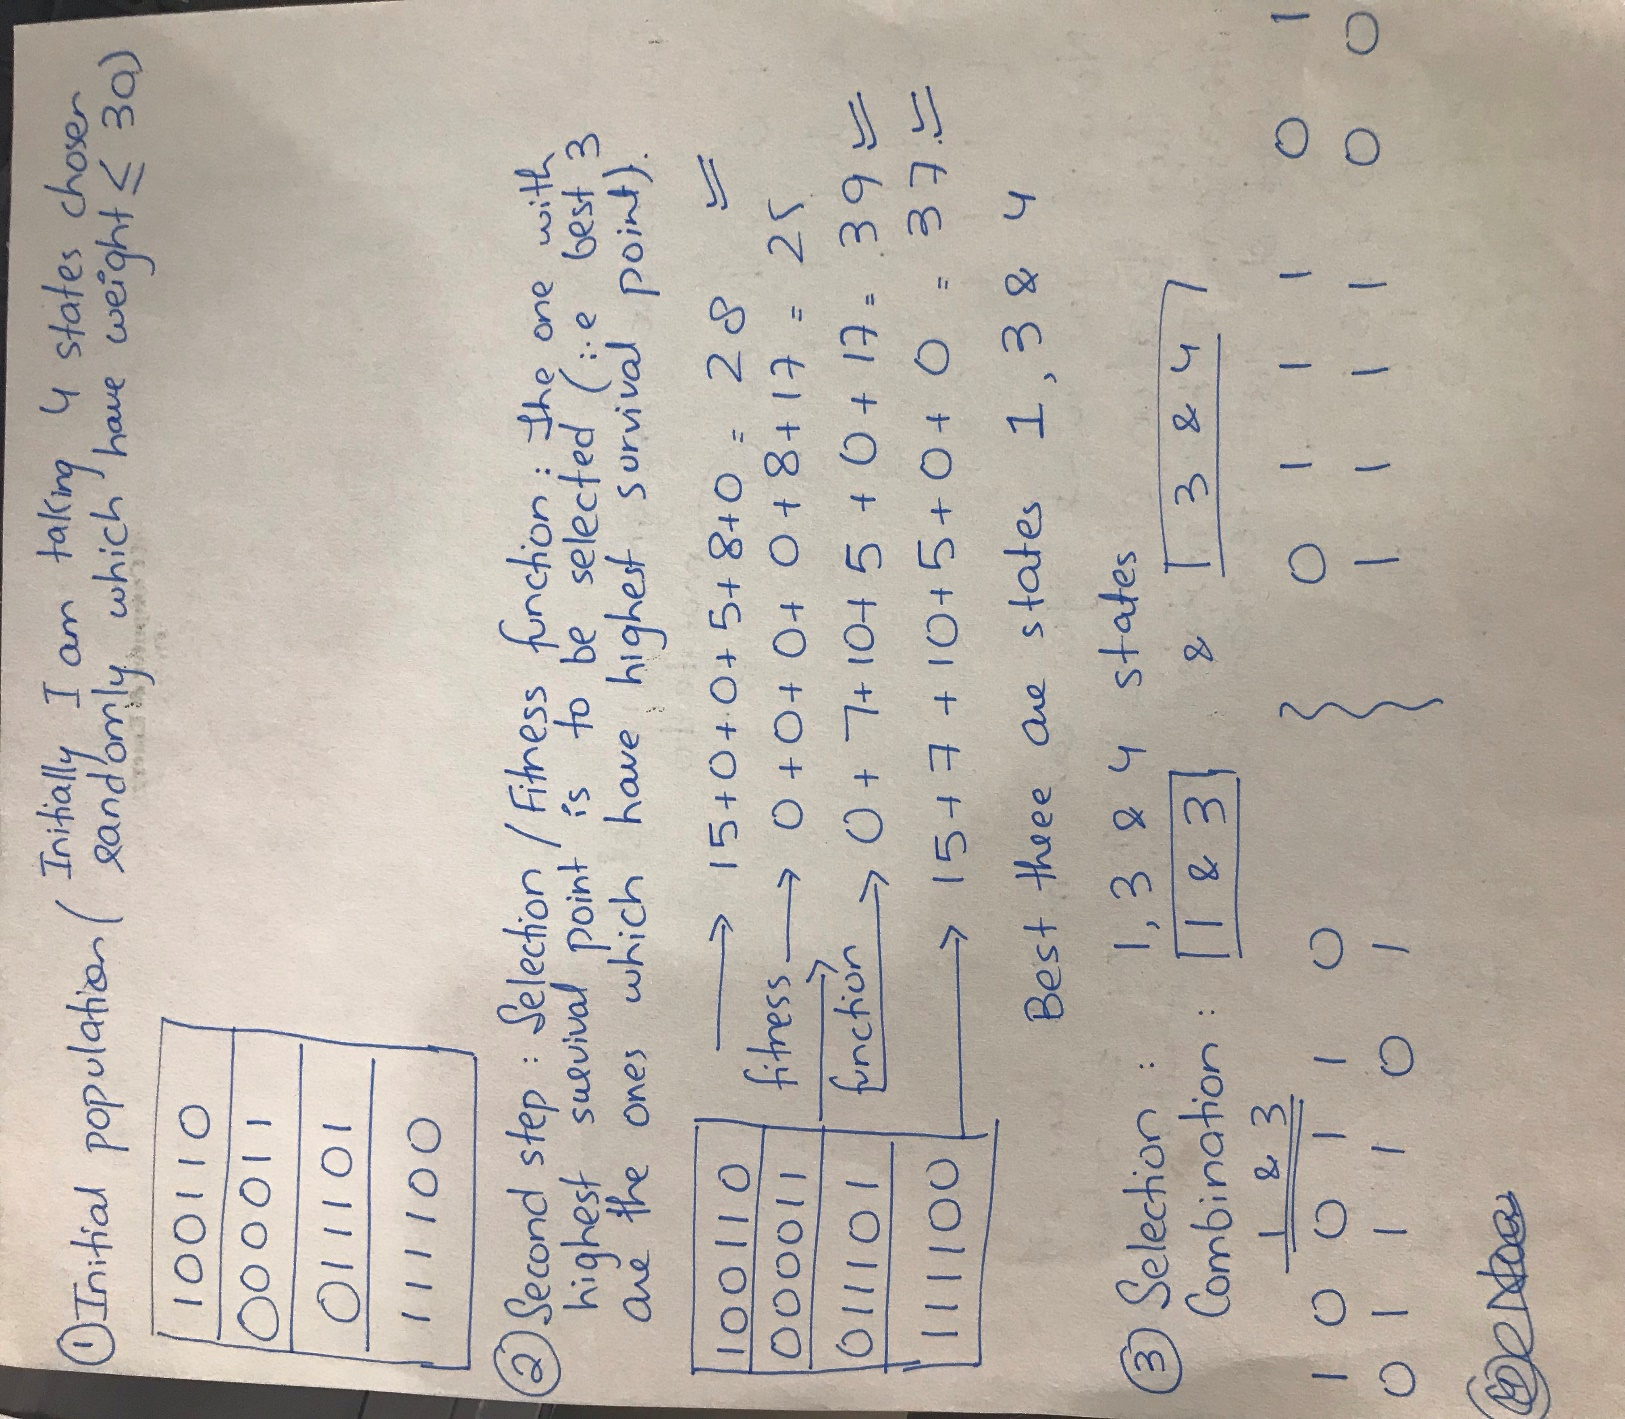 ① Initial population ( Initially I am taking 4 states chosen
randomly which have weight ≤ 30)
100110
000011
011101
111100
② Second step : Selection / Fitness function : The one with
highest survival point is to be selected (i.e best 3
are the ones which have highest survival point).
100110 → 15+0+0+5+8+0 = 28
000011 fitness → 0+0+0+0+8+17 = 25
011101 function → 0+7+10+5+0+17 = 39
111100 → 15+7+10+5+0+0 = 37
Best three are states 1, 3 & 4
③ Selection : 1, 3 & 4 states
Combination : 1 & 3 & 3 & 4
1 & 3
1 0 0 1 1 0 0 1 1 1 0 1
0 1 1 1 0 1 1 1 1 1 0 0